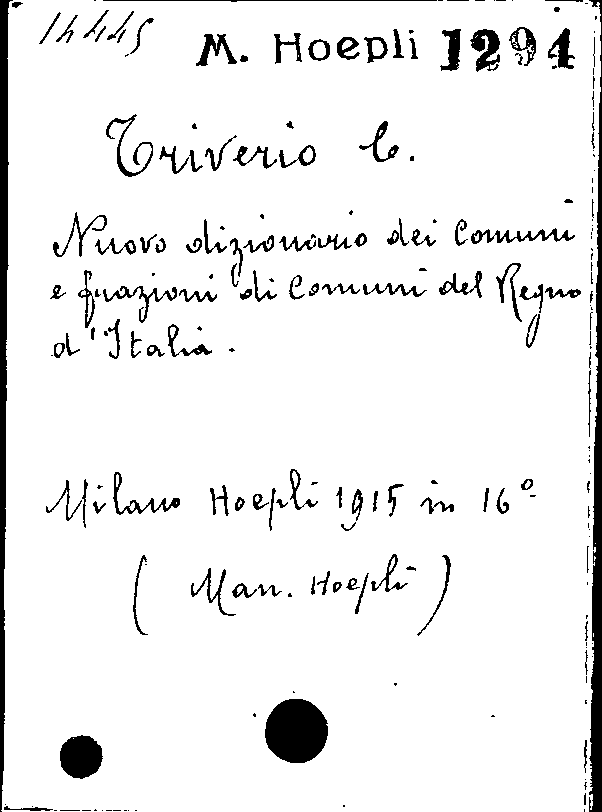 14445
M. Hoepli 1294
Triverio C.
Nuovo dizionario dei Comuni
e frazioni di Comuni del Regno
d'Italia.
Milano Hoepli 1915 in 16º
( Man. Hoepli )